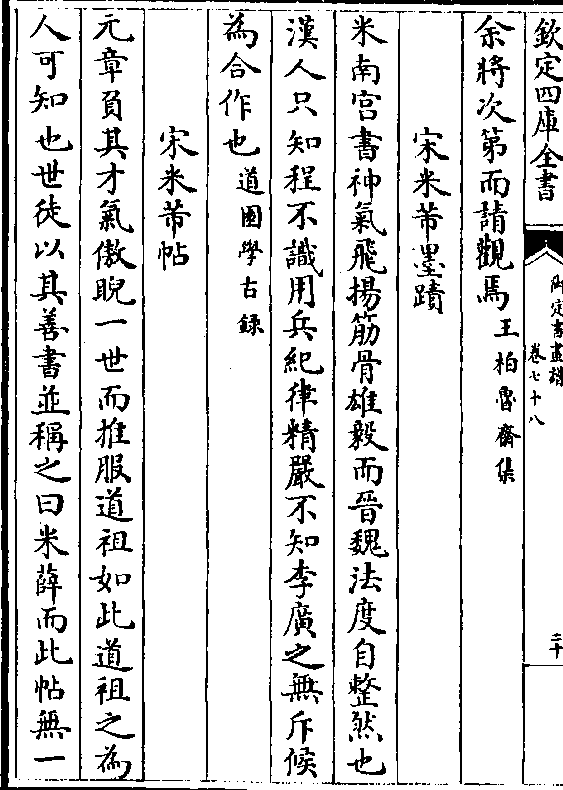 欽定四庫全書
御定書畫譜
卷七十八
二十
余將次第而請觀焉王柏魯齋集
宋米芾墨蹟
米南宮書神氣飛揚筋骨雄毅而晉魏法度自整然也
漢人只知程不識用兵紀律精嚴不知李廣之無斥候
為合作也道園學古錄
宋米芾帖
元章負其才氣傲睨一世而推服道祖如此道祖之為
人可知也世徒以其善書並稱之曰米薛而此帖無一